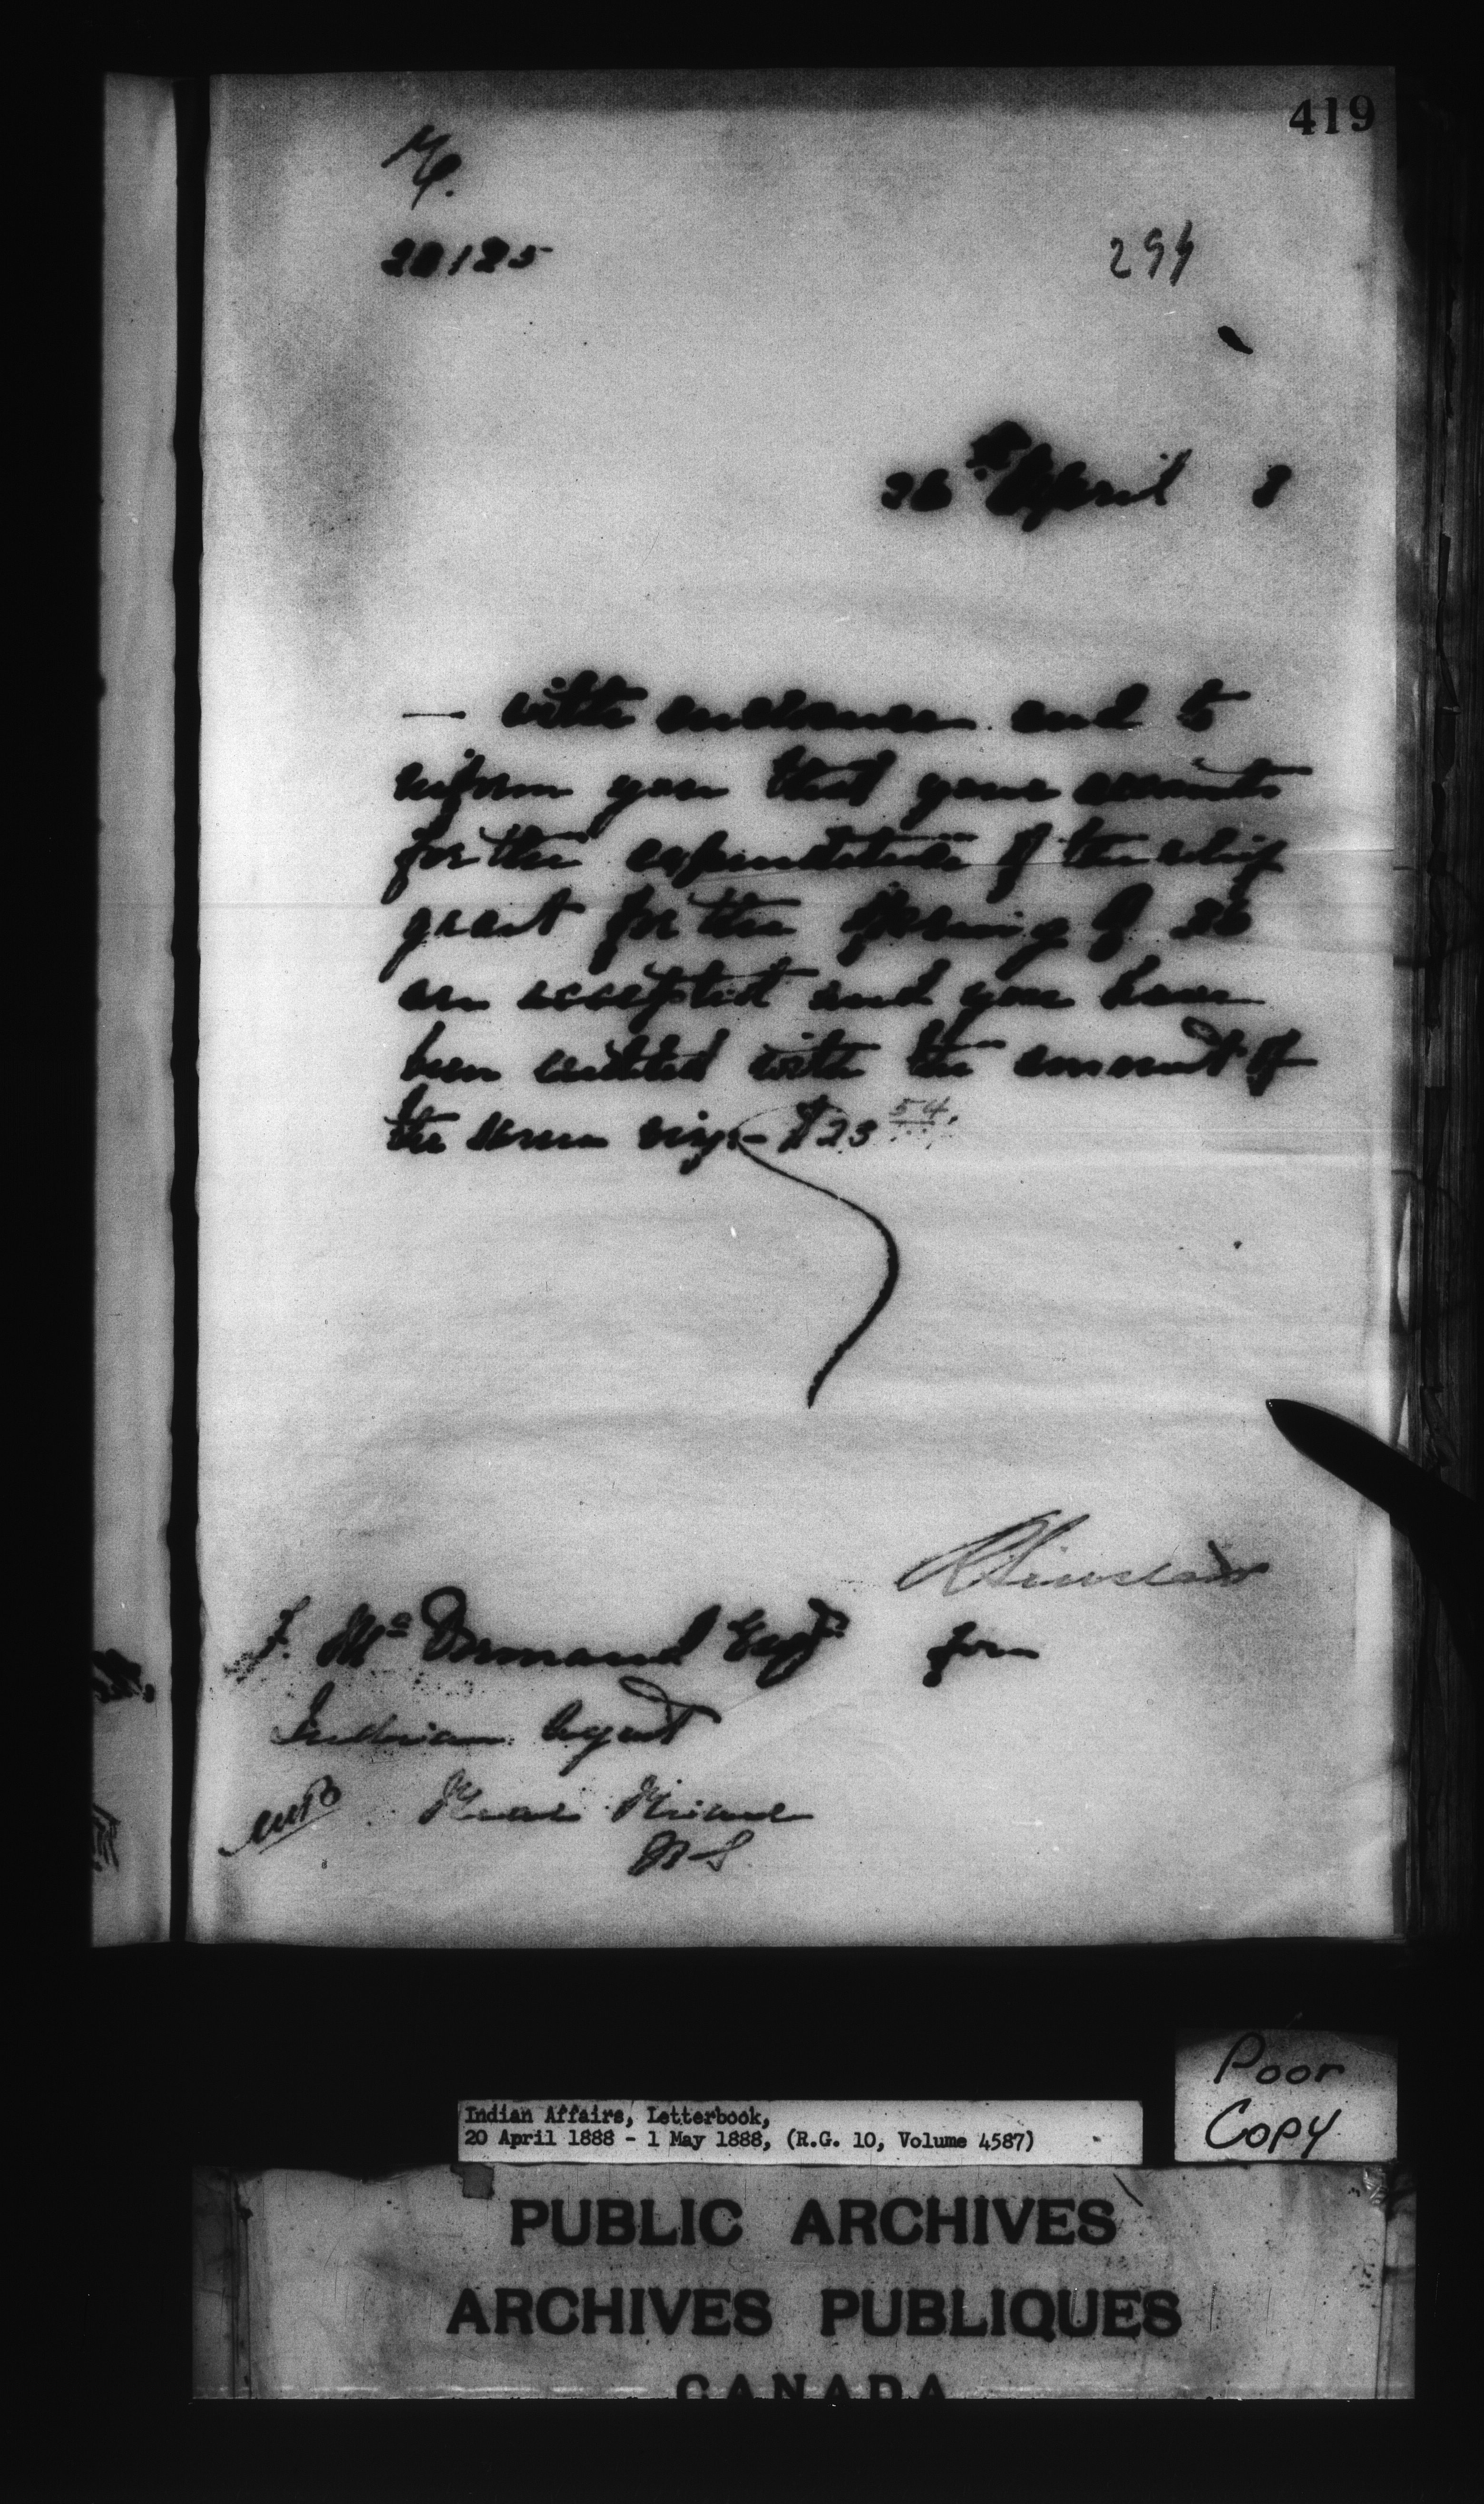 419
20125
294
26th April 8
— with enclosures and to
inform you that your accounts
for the expenditure of the relief
grant for the Spring of 88
are accepted and you have
been credited with the amount of
the same viz:- $23 54.
for
F. McDormand Esqr
Indian Agent
Bear River
N.S.
Poor
Copy
Indian Affairs, Letterbook,
20 April 1888 - 1 May 1888, (R.G. 10, Volume 4587)
PUBLIC ARCHIVES
ARCHIVES PUBLIQUES
CANADA